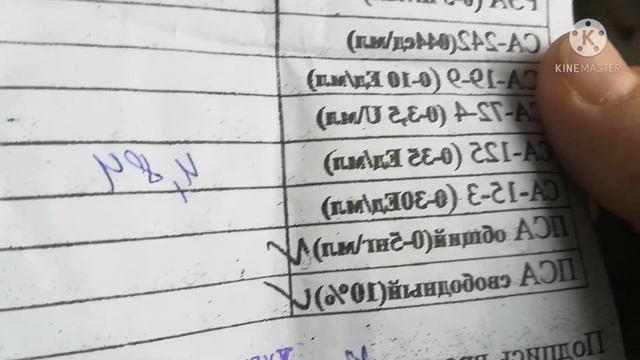 СА-242(044ед/мл)
СА-19-9 (0-10 Ед/мл)
СА-72-4 (0-3,5 U/мл)
СА-125 (0-35 Ед/мл)
СА-15-3 (0-30Ед/мл)
ПСА общий(0-5нг/мл)
ПСА свободный(10%)
Подпись
KINEMASTER